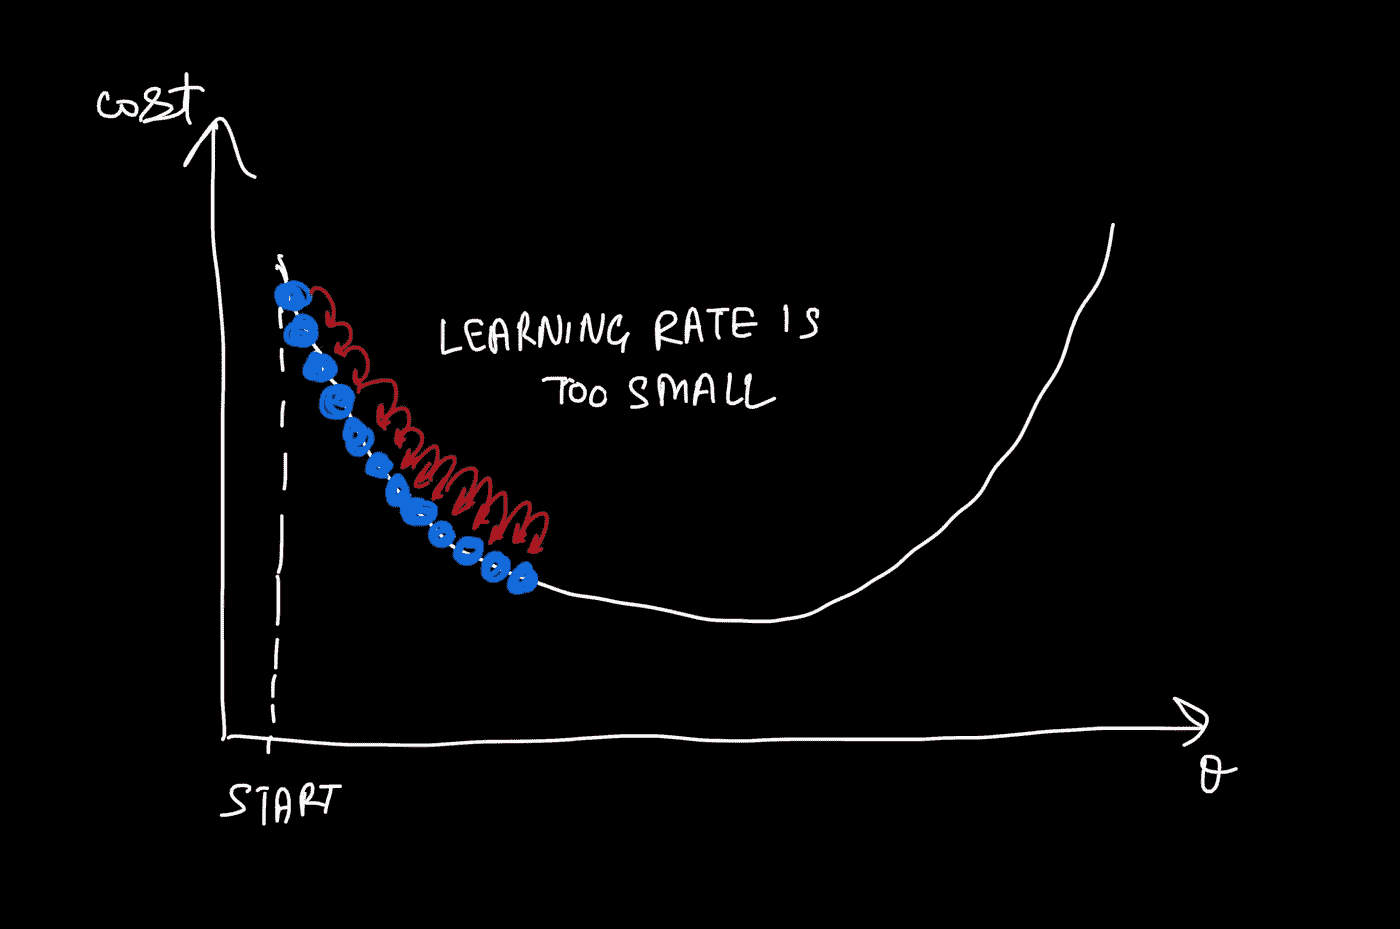 cost
LEARNING RATE IS
TOO SMALL
θ
START